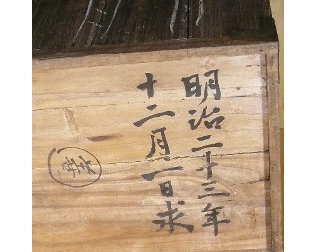 明治二十三年
十二月一日求